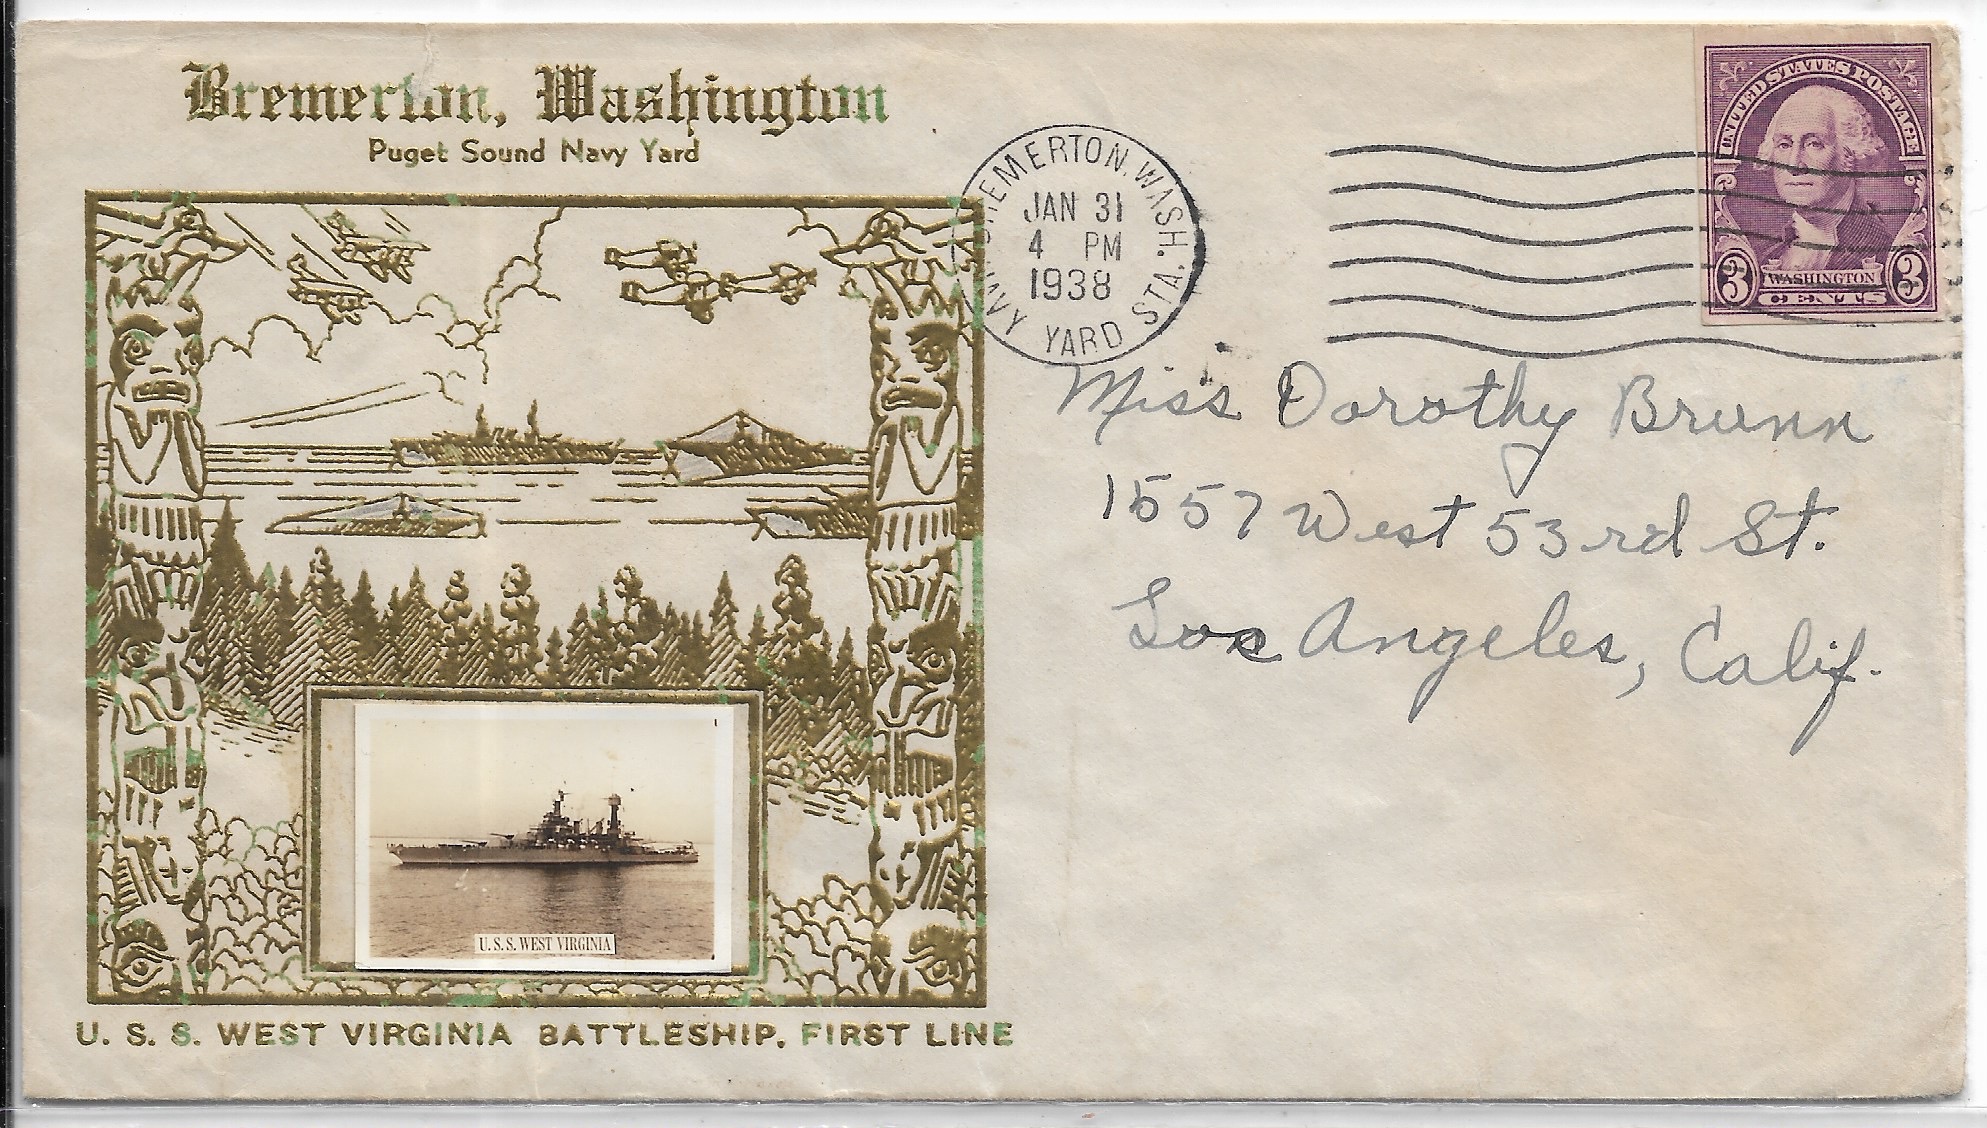 Bremerton, Washington
Puget Sound Navy Yard
BREMERTON, WASH.
JAN 31
4 PM
1938
NAVY YARD STA.
UNITED STATES POSTAGE
3 WASHINGTON 3
CENTS
Miss Dorothy Brunn
1557 West 53rd St.
Los Angeles, Calif.
U. S. S. WEST VIRGINIA
U. S. S. WEST VIRGINIA BATTLESHIP, FIRST LINE